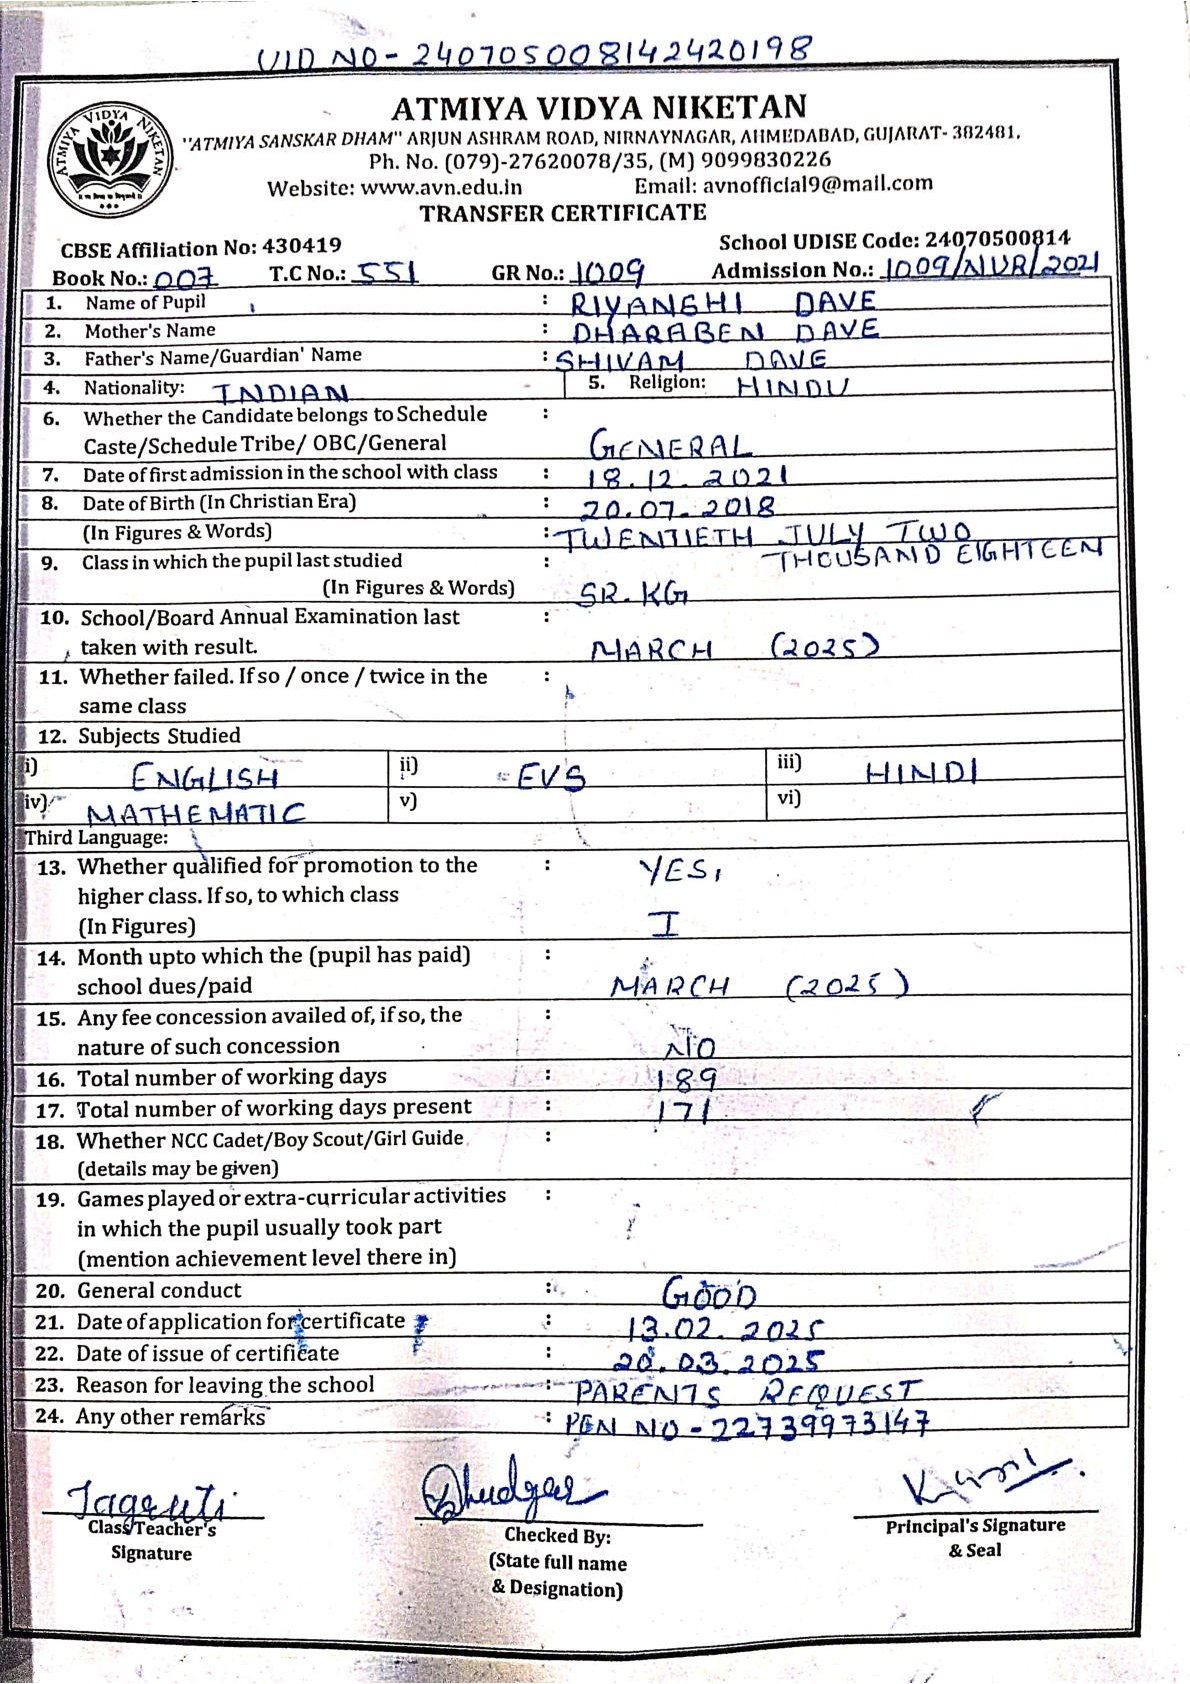 UID NO- 240705008142420198
ATMIYA VIDYA NIKETAN
ATMIYA VIDYA NIKETAN
"ATMIYA SANSKAR DHAM" ARJUN ASHRAM ROAD, NIRNAYNAGAR, AHMEDABAD, GUJARAT- 382481.
Ph. No. (079)-27620078/35, (M) 9099830226
Website: www.avn.edu.in Email: avnofficial9@mail.com
TRANSFER CERTIFICATE
CBSE Affiliation No: 430419 School UDISE Code: 24070500814
Book No.: 007 T.C No.: 551 GR No.: 1009 Admission No.: 1009/NUR/2021
1. Name of Pupil : RIYANSHI DAVE
2. Mother's Name : DHARABEN DAVE
3. Father's Name/Guardian' Name : SHIVAM DAVE
4. Nationality: INDIAN 5. Religion: HINDU
6. Whether the Candidate belongs to Schedule :
Caste/Schedule Tribe/ OBC/General GENERAL
7. Date of first admission in the school with class : 18.12.2021
8. Date of Birth (In Christian Era) : 20.07.2018
(In Figures & Words) : TWENTIETH JULY TWO
THOUSAND EIGHTEEN
9. Class in which the pupil last studied :
(In Figures & Words) SR.KG
10. School/Board Annual Examination last :
taken with result. MARCH (2025)
11. Whether failed. If so / once / twice in the :
same class
12. Subjects Studied
i) ENGLISH ii) EVS iii) HINDI
iv) MATHEMATIC v) vi)
Third Language:
13. Whether qualified for promotion to the : YES,
higher class. If so, to which class
(In Figures) I
14. Month upto which the (pupil has paid) :
school dues/paid MARCH (2025)
15. Any fee concession availed of, if so, the :
nature of such concession NO
16. Total number of working days : 189
17. Total number of working days present : 171
18. Whether NCC Cadet/Boy Scout/Girl Guide :
(details may be given)
19. Games played or extra-curricular activities :
in which the pupil usually took part
(mention achievement level there in)
20. General conduct : GOOD
21. Date of application for certificate : 13.02.2025
22. Date of issue of certificate : 20.03.2025
23. Reason for leaving the school : PARENTS REQUEST
24. Any other remarks : PEN NO - 22739973147
Jagruti
Class Teacher's
Signature
Checked By:
(State full name
& Designation)
Principal's Signature
& Seal